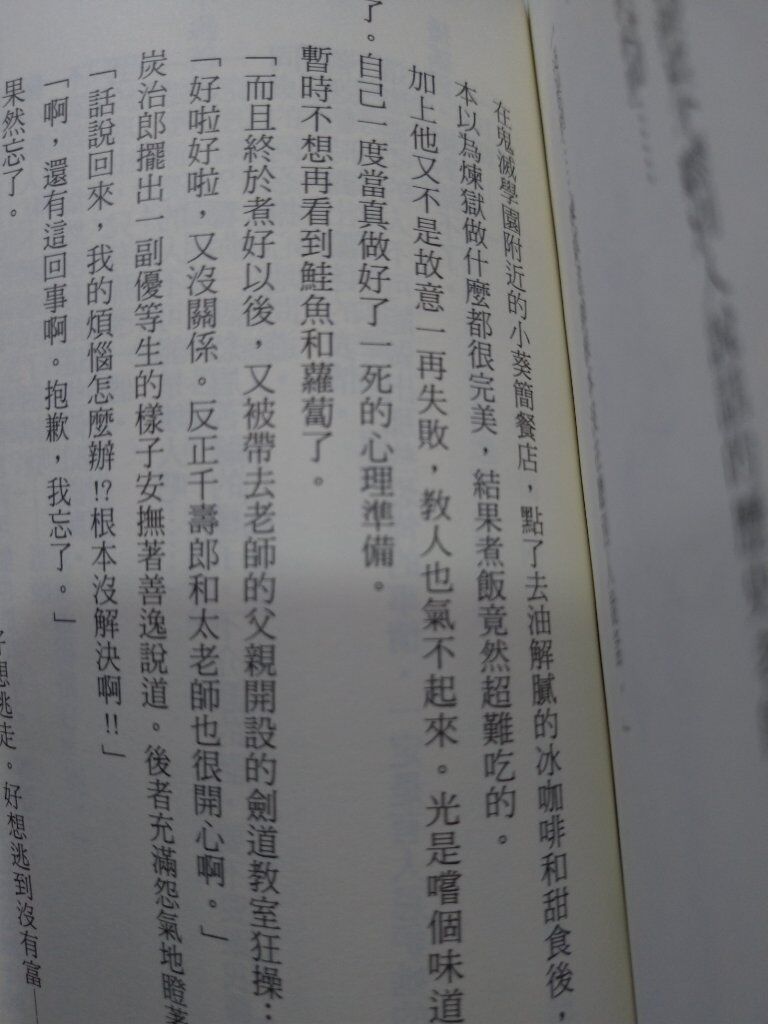 在鬼滅學園附近的小葵簡餐店，點了去油解膩的冰咖啡和甜食後，
本以為煉獄做什麼都很完美，結果煮飯竟然超難吃的。
加上他又不是故意一再失敗，教人也氣不起來。光是嚐個味道
了。自己一度當真做好了一死的心理準備。
暫時不想再看到鮭魚和蘿蔔了。
「而且終於煮好以後，又被帶去老師的父親開設的劍道教室狂操…
「好啦好啦，又沒關係。反正千壽郎和太老師也很開心啊。」
炭治郎擺出一副優等生的樣子安撫著善逸說道。後者充滿怨氣地瞪著
「話說回來，我的煩惱怎麼辦!?根本沒解決啊!!」
「啊，還有這回事啊。抱歉，我忘了。」
果然忘了。
想逃走。好想逃到沒有富—